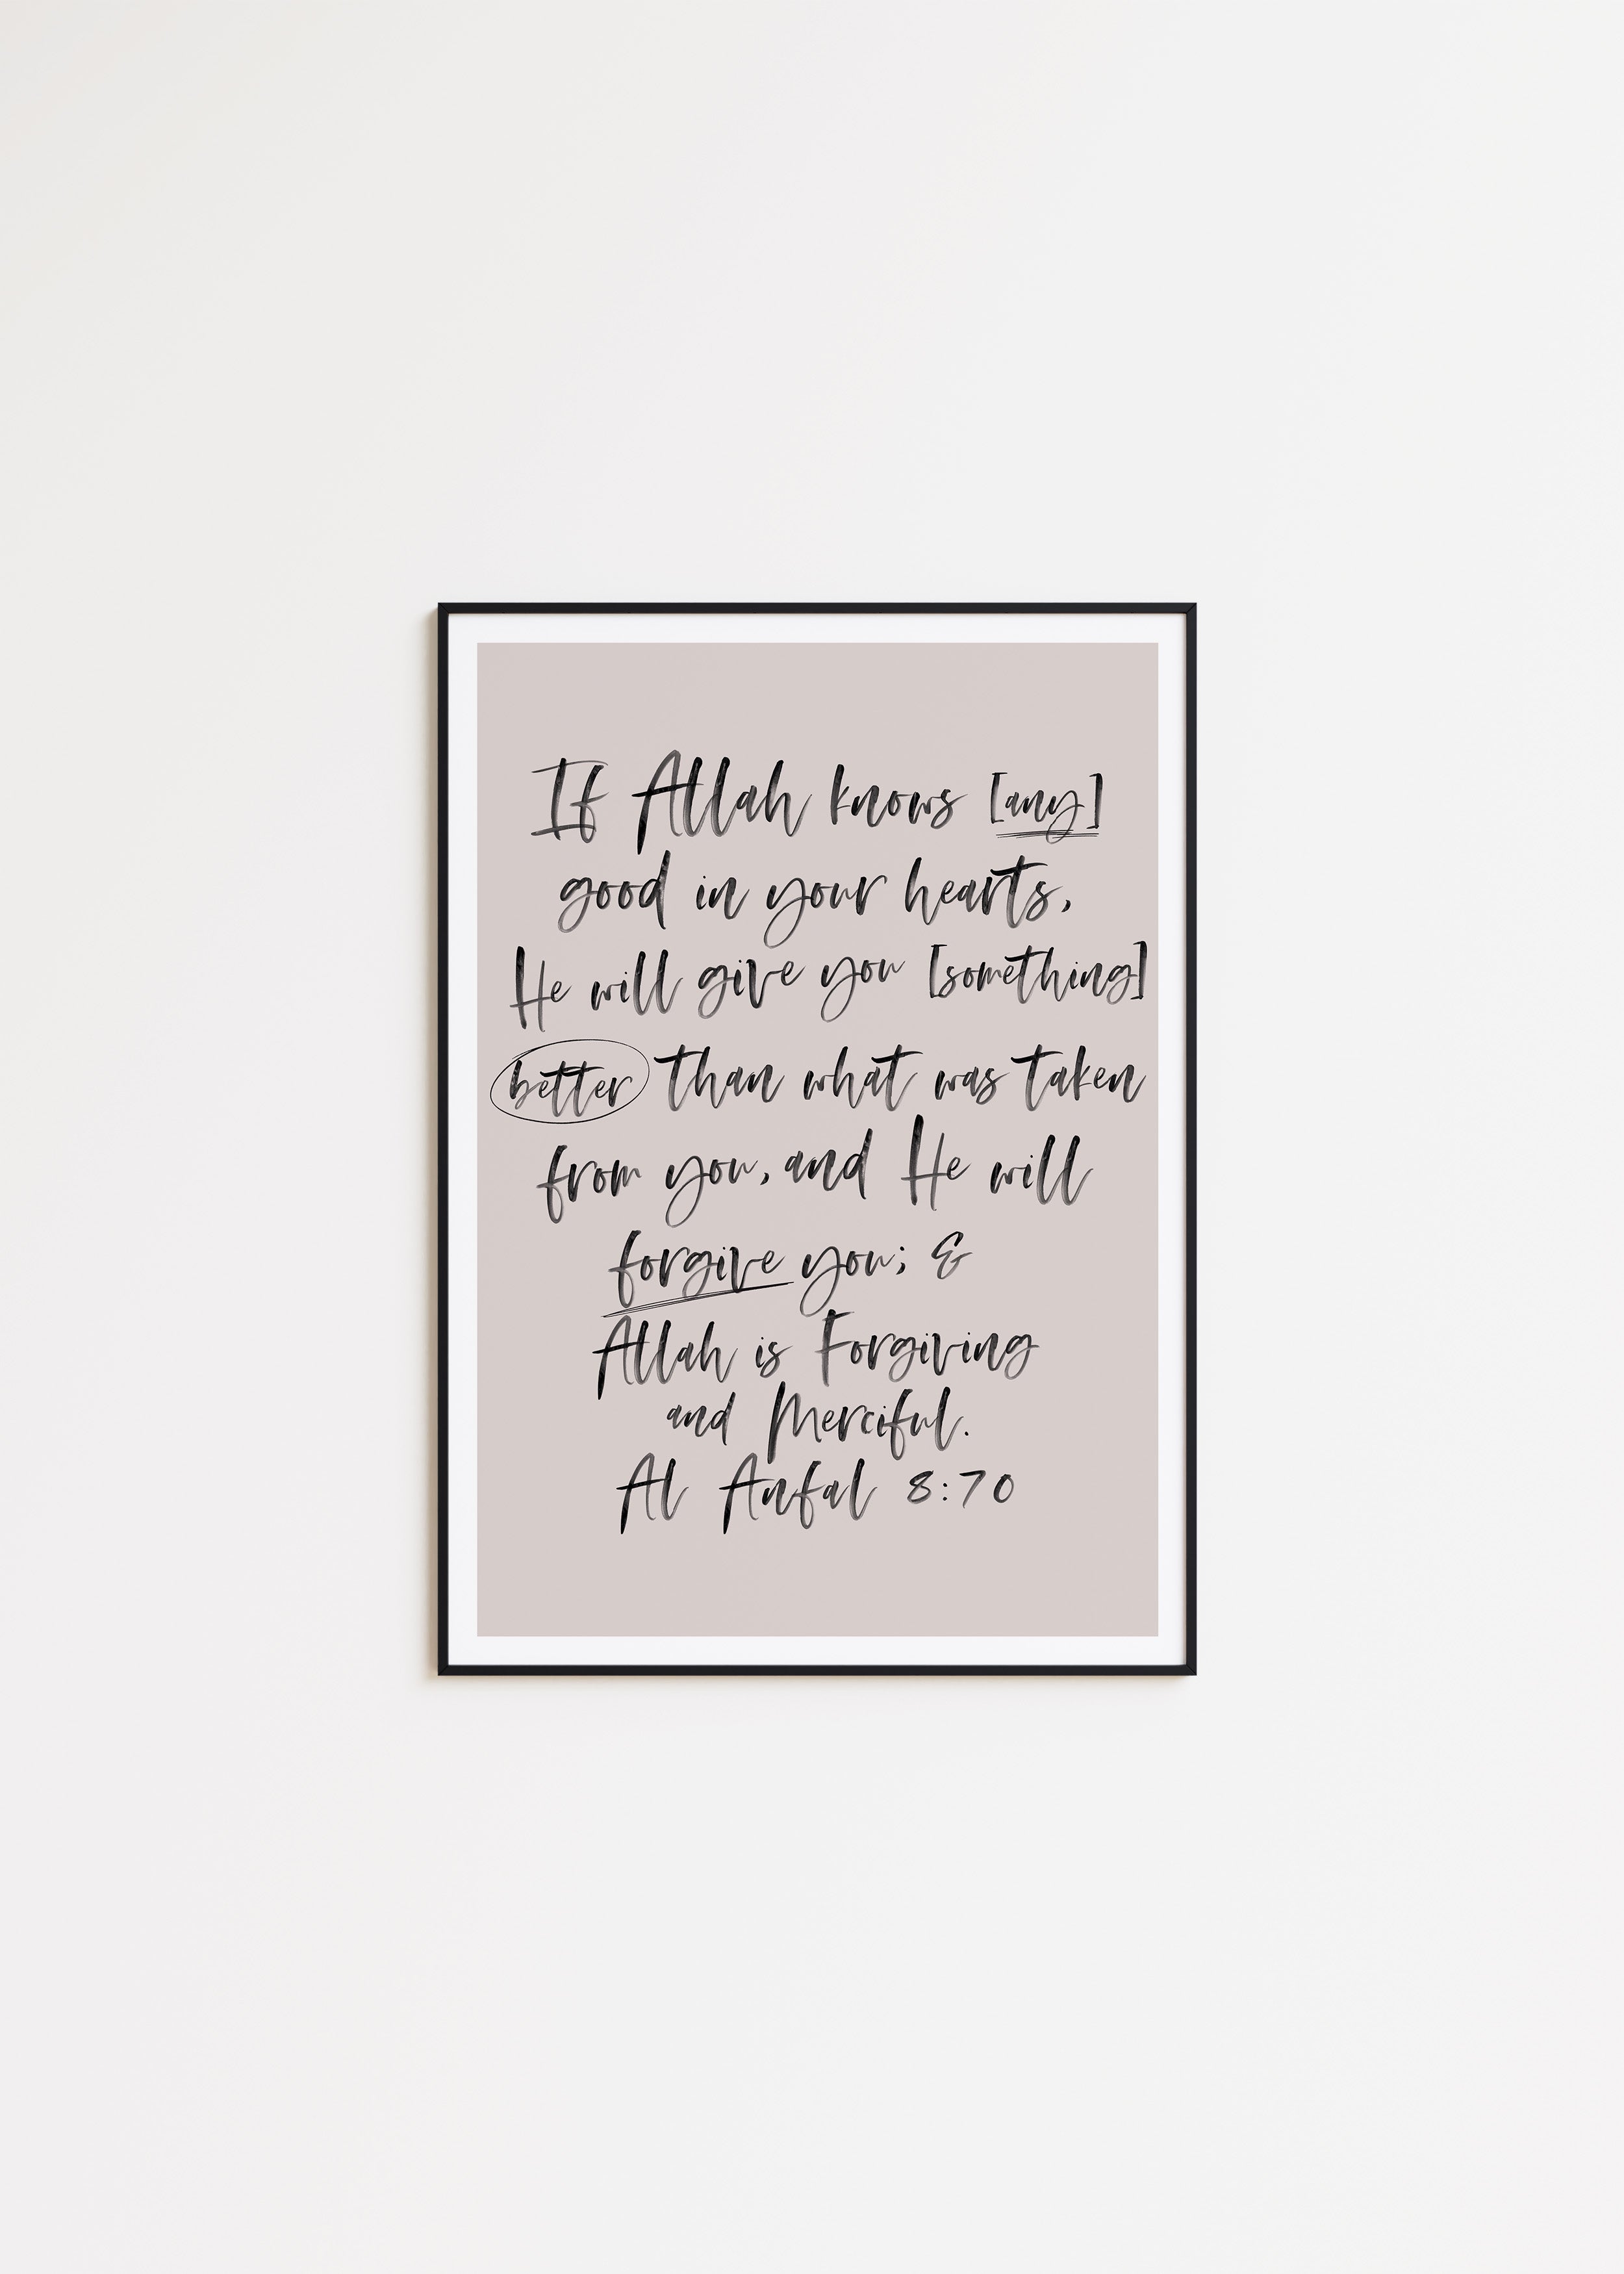 If Allah knows [any]
good in your hearts,
He will give you [something]
better than what was taken
from you, and He will
forgive you; &
Allah is Forgiving
and Merciful.
Al Anfal 8:70